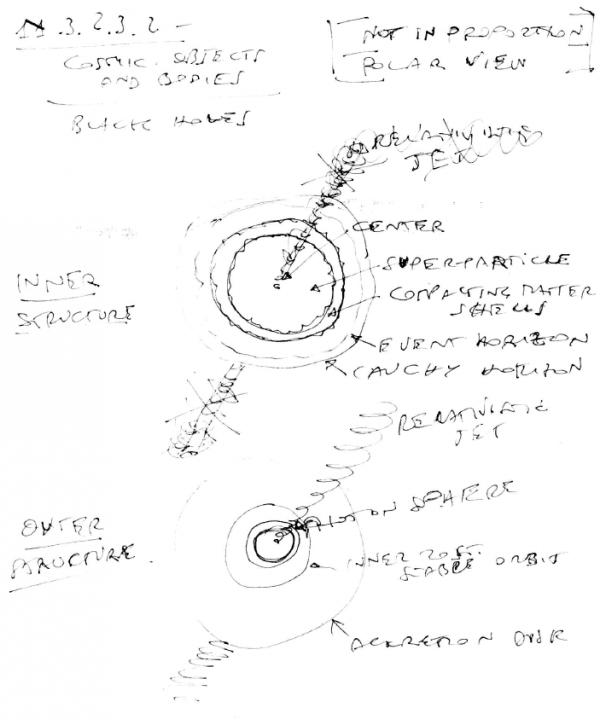 11.3.2.3.2 -
COSMIC OBJECTS
AND BODIES
BLACK HOLES
NOT IN PROPORTION
POLAR VIEW
RELATIVISTIC
JET
CENTER
SUPERPARTICLE
COMPACTING MATTER
SHELLS
EVENT HORIZON
CAUCHY HORIZON
INNER
STRUCTURE
RELATIVISTIC
JET
PHOTON SPHERE
INNERMOST
STABLE ORBIT
ACCRETION DISK
OUTER
STRUCTURE